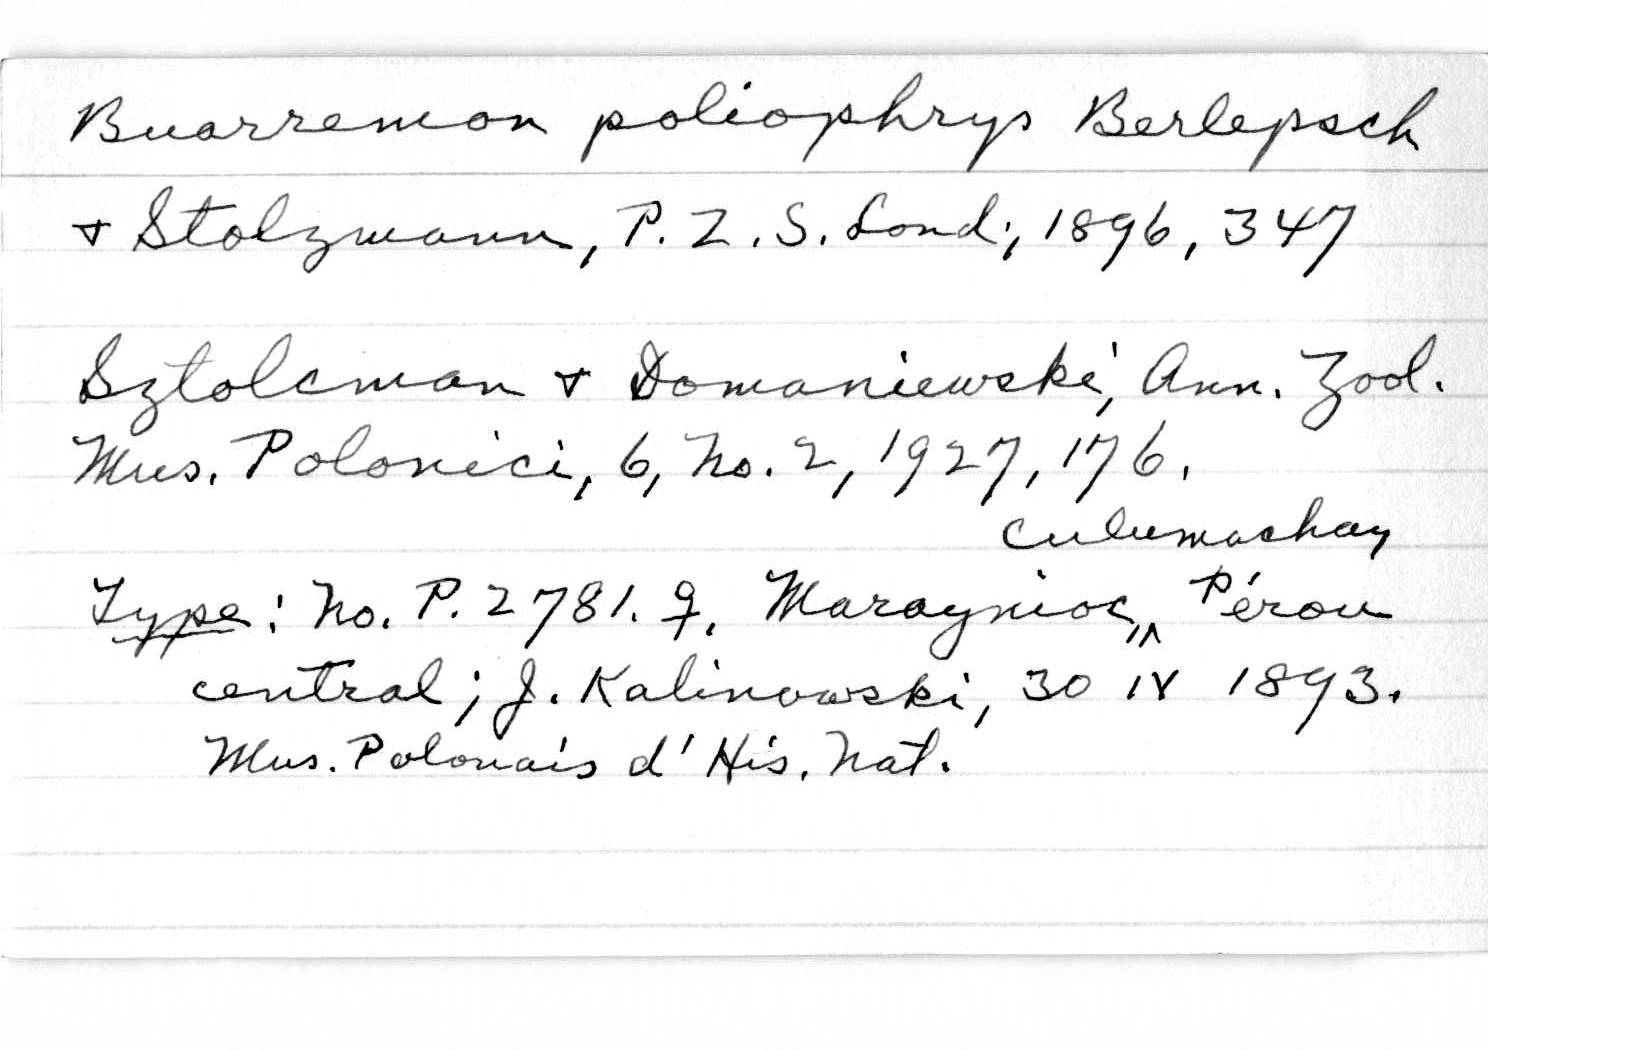 Buarremon poliophrys Berlepsch
& Stolzmann, P.Z.S. Lond., 1896, 347
Sztolcman & Domaniewski, Ann. Zool.
Mus. Polonici, 6, No. 2, 1927, 176.
Culumachay
Type: No. P. 2781. ♀. Maraynioc, ^ Pérou
central; J. Kalinowski, 30 IV 1893.
Mus. Polonais d'His. Nat.